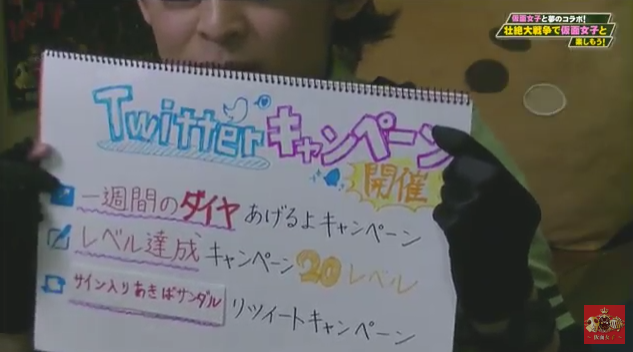 仮面女子と夢のコラボ!
壮絶大戦争で仮面女子と
楽しもう!
Twitterキャンペーン
開催
一週間のダイヤあげるよキャンペーン
レベル達成キャンペーン20レベル
サイン入りあきばサンダルリツイートキャンペーン
仮面女子